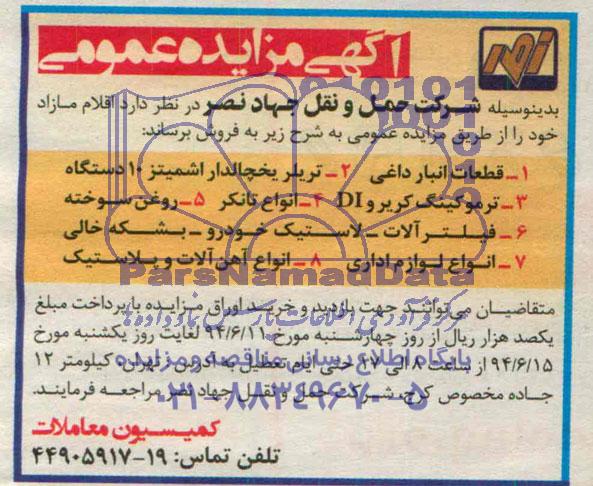 آگهی مزایده عمومی
نصر
بدینوسیله شرکت حمل و نقل جهاد نصر در نظر دارد اقلام مازاد
خود را از طریق مزایده عمومی به شرح زیر به فروش برساند:
۱- قطعات انبار داغی ۲- تریلر یخچالدار اشمیتز ۱۰ دستگاه
۳- ترموکینگ کریر و DI ۴- انواع تانکر ۵- روغن سوخته
۶- فیلتر آلات - لاستیک خودرو - بشکه خالی
۷- انواع لوازم اداری ۸- انواع آهن آلات و پلاستیک
ParsNamadData
متقاضیان می‌توانند جهت بازدید و خرید اوراق مزایده با پرداخت مبلغ
یکصد هزار ریال از روز چهارشنبه مورخ ۹۴/۶/۱۱ لغایت روز یکشنبه مورخ
۹۴/۶/۱۵ از ساعت ۸ الی ۱۷ حتی ایام تعطیل به آدرس: تهران، کیلومتر ۱۲
پایگاه اطلاع رسانی مناقصه و مزایده
جاده مخصوص کرج، شرکت حمل و نقل جهاد نصر مراجعه فرمایند.
۰۲۱-۸۸۳۴۹۶۷۰-۵
کمیسیون معاملات
تلفن تماس: ۱۹-۴۴۹۰۵۹۱۷